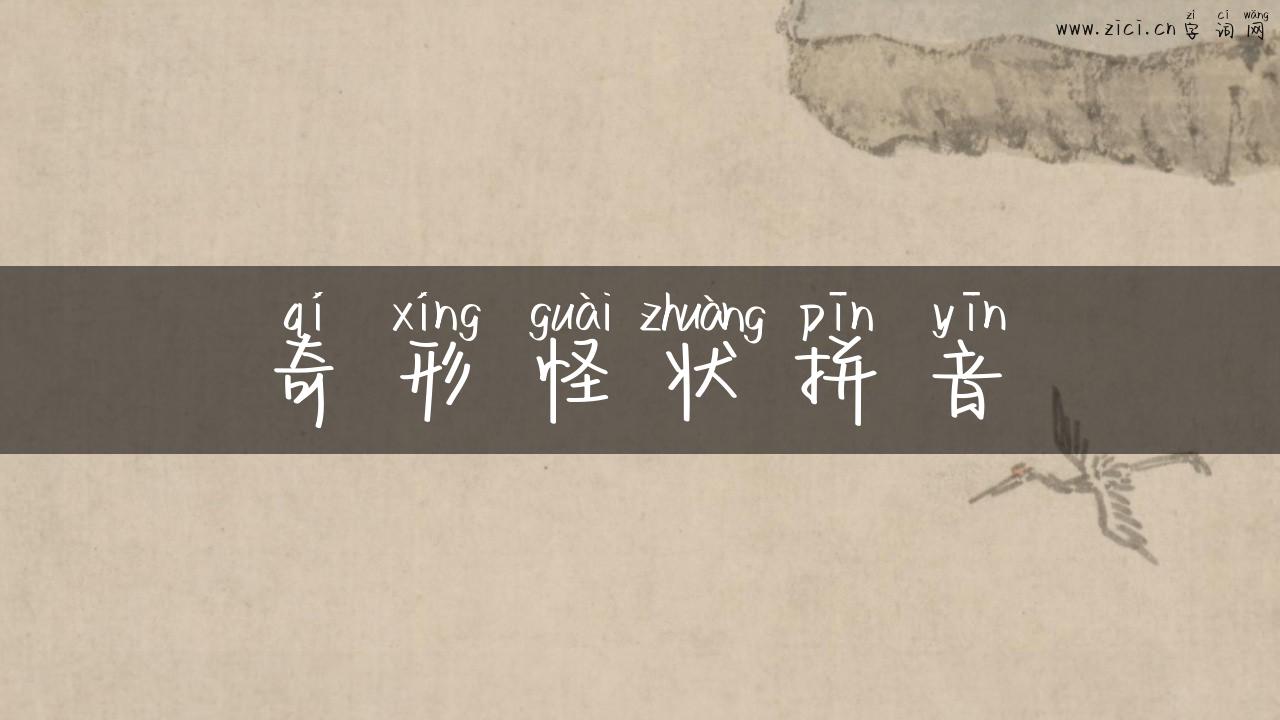 zì cí wǎng
www.zici.cn 字词网
qí xíng guài zhuàng pīn yīn
奇形怪状拼音